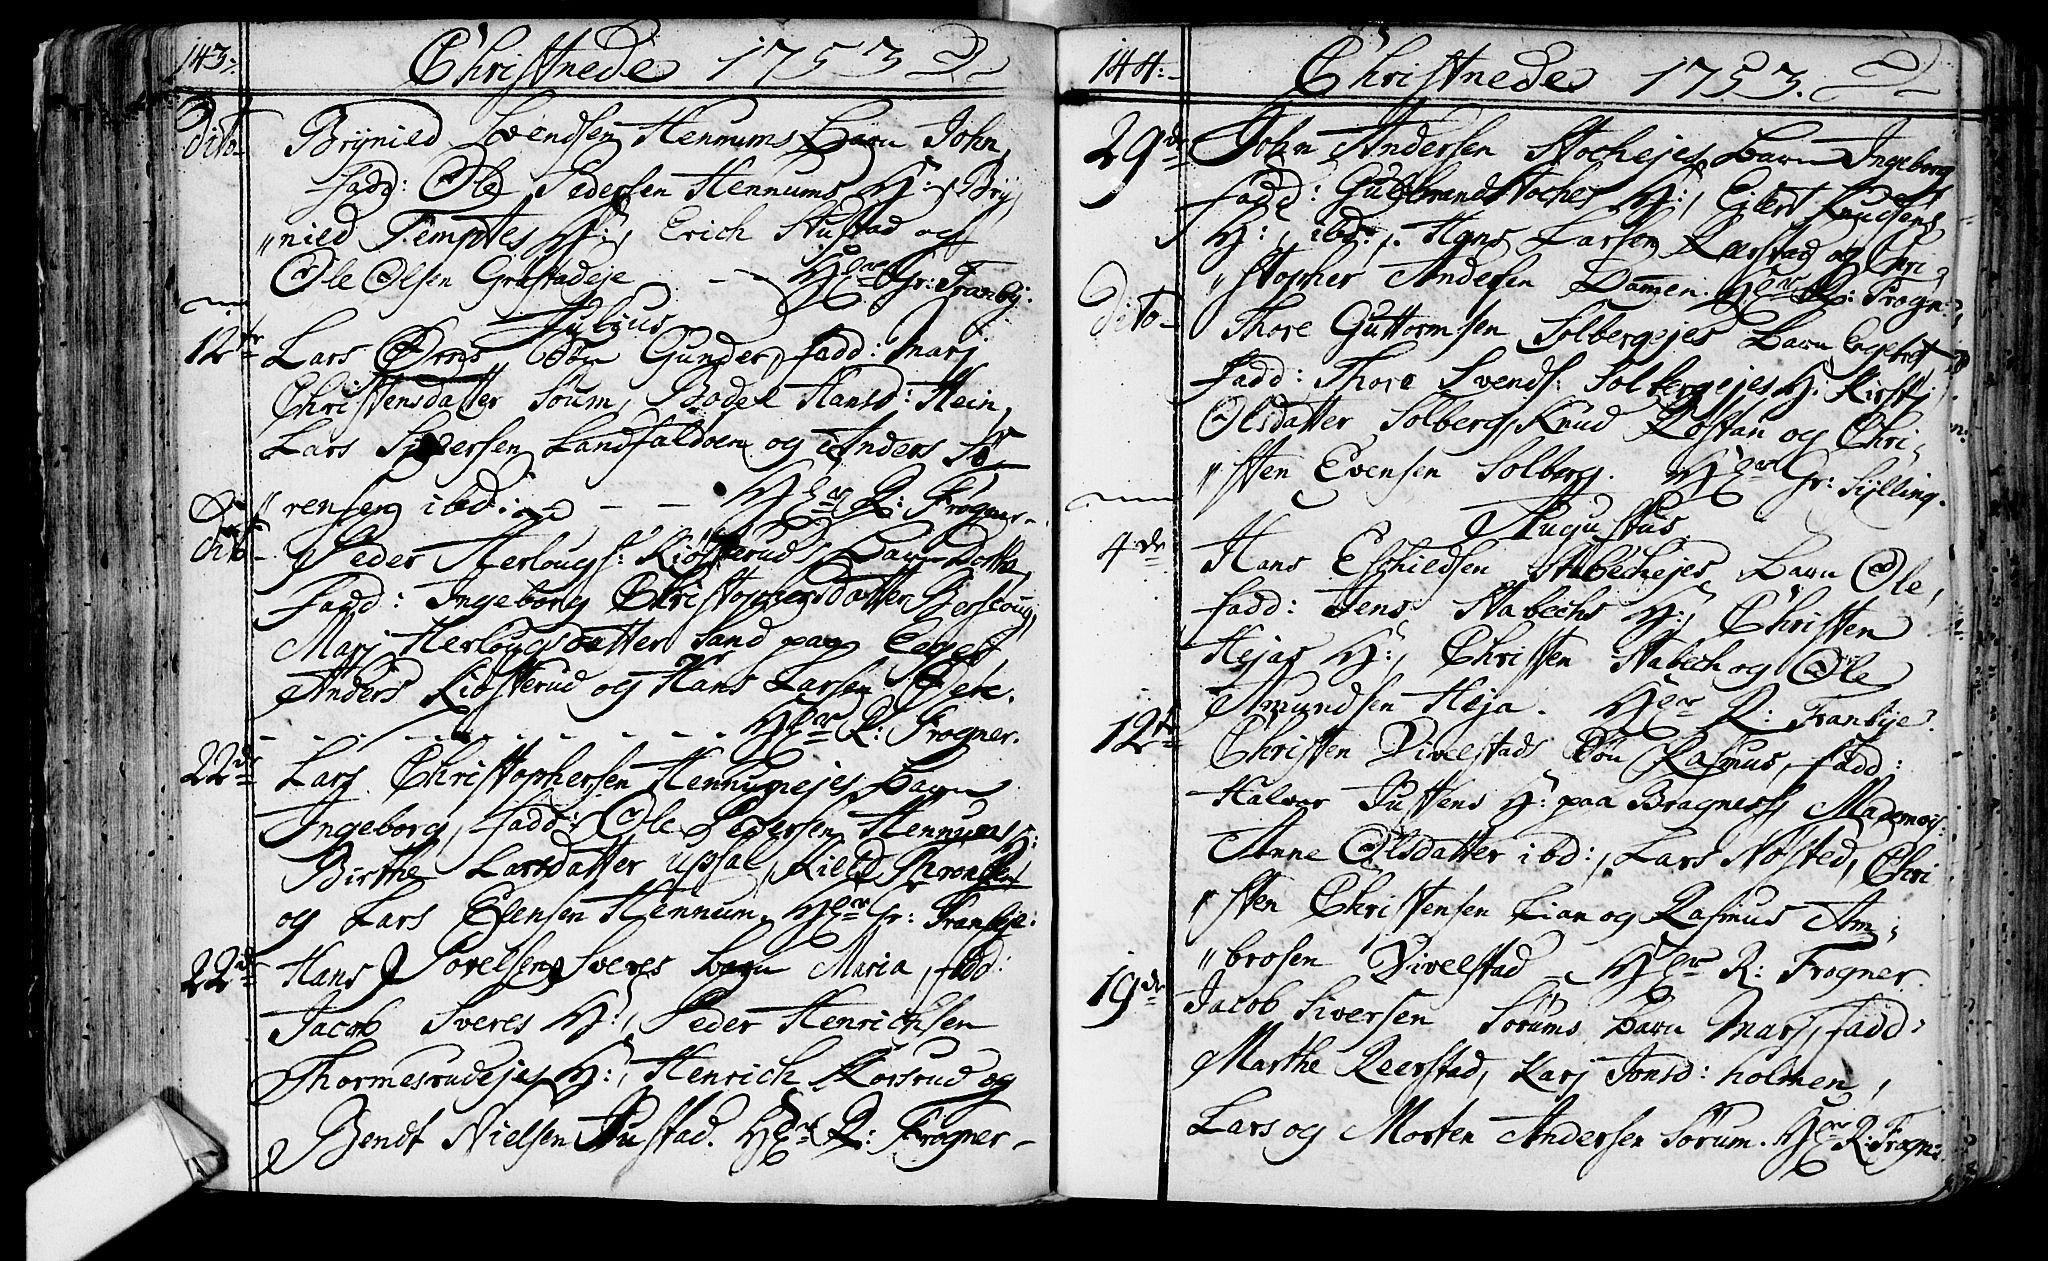 143.
Christnede 1753
dito Brynild Svendsen Hennums Barn John,
fadd: Ole Pedersen Hennums H:, Bry¸
"nild Temptes H:, Erich Stustad og
Ole Olsen Grøstadeje - - Hr Gr: Tranby.
Julius
12te Lars Orns Søn Gunder, fadd: Marj
Christensdatter Soum, Bodel Hansd: Hein,
Lars Pedersen Landfaldøen og Anders Sø¸
"rensen ibd: - - Hr R: Frogner-
dito Peder Herlougs: Kiøsteruds Barn Dorthe
Fadd: Ingeborg Christophersdatter Berscoug,
Marj Herlougsdatter Sand paa Eeget,
Anders Kiøsterud og Hans Larsen
- - - - - - Hr R: Frogner.
22de Lars Christophersen Hennumejes Barn
Ingeborg, fadd: Ole Pedersen Hennums H:
Birthe Larsdatter Upsal, Kield Thronsen
og Lars Evensen Hennum. Hr Gr: Tranbye:
22de Hans Povelsen Sveres Barn Maria, fadd:
Jacob Sveres H:, Peder Henrichsen
Thormesrudejes H:, Henrich Korsrud og
Bendt Nielsen Pustad. Hr R: Frogner-
144:
Christnede 1753.
29de John Andersen Stochejes Barn Ingeborg
fadd: Gulbrand Stoches H:, Eilert Knudsens
H:, ibd:, Hans Larsen Reerstad og Chri¸
"stopher Andersen Dammen. Hr R: Frogn:
dito Thore Guttormsen Solbergejes Barn Engebret
fadd: Thore Svends: Solbergejes H: Kirstj
Olsdatter Solberg, Knud Røstan og Chri¸
"sten Evensen Solberg. Hr Gr: Sylling.
Augustus
4de Hans Eschildsen Stabechejes Barn Ole,
fadd: Jens Stabechs H:, Christen
Hejas H:, Christen Stabech og Ole
Amundsen Heja. Hr R: Tranbye.
12te Christen Divelstads Søn Rasmus, fadd:
Halvor Justsens H: paa Bragness, Mademois:
Anne Olsdatter ibd:, Lars Nøsted, Chri
"sten Christensen Lian og Rasmus Am¸
"brosen Divelstad - Hr R: Frogner.
19de Jacob Siversen Sørums Barn Marj, fadd:
Marthe Reerstad, Karj Jonsd: holmen,
Lars og Morten Andersen Sørum. Hr R: Frogn: